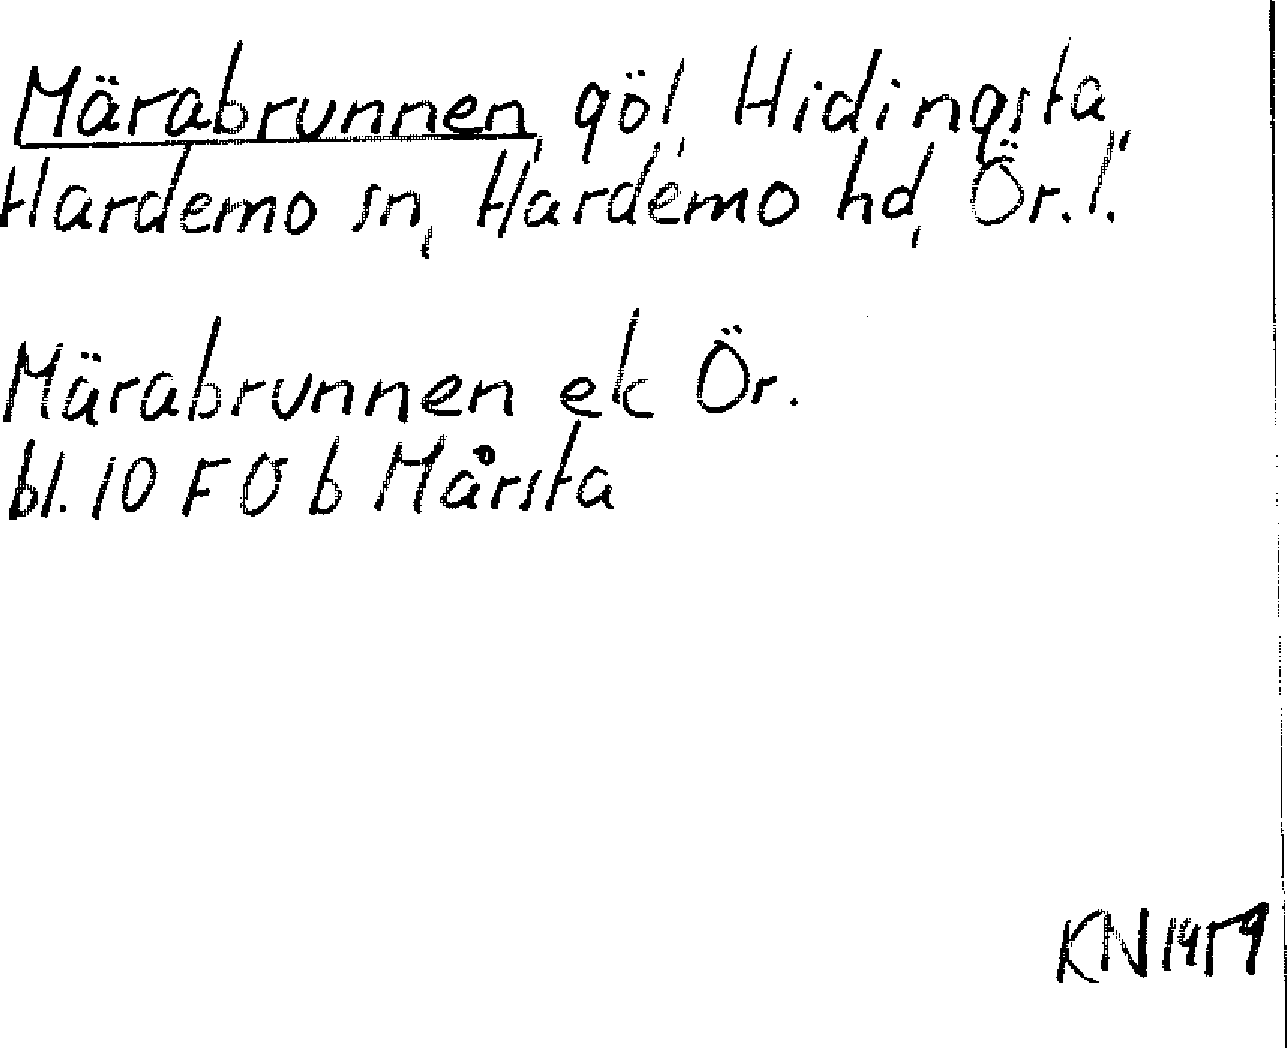 Märabrunnen, göl, Hidingsta,
Hardemo sn, Hardemo hd, Ör. l.
Märabrunnen ek Ör.
bl. 10 F 0 b Mårsta
KN 1959